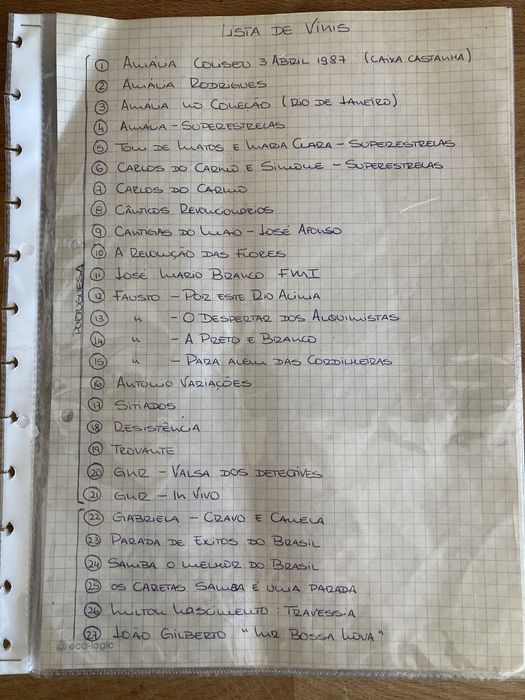 LISTA DE VINIS
1 AMÁLIA COLISEU 3 ABRIL 1987 (CAIXA CASTANHA)
2 AMÁLIA RODRIGUES
3 AMÁLIA NO CANECÃO (RIO DE JANEIRO)
4 AMÁLIA - SUPERESTRELAS
5 TONI DE MATOS E MARIA CLARA - SUPERESTRELAS
6 CARLOS DO CARMO E SIMONE - SUPERESTRELAS
7 CARLOS DO CARMO
8 CÂNTICOS REVOLUCIONÁRIOS
9 CANTIGAS DO MAIO - JOSÉ AFONSO
10 A REVOLUÇÃO DAS FLORES
11 JOSÉ MARIO BRANCO FMI
12 FAUSTO - POR ESTE RIO ACIMA
13 " - O DESPERTAR DOS ALQUIMISTAS
14 " - A PRETO E BRANCO
15 " - PARA ALÉM DAS CORDILHEIRAS
16 ANTÓNIO VARIAÇÕES
17 SITIADOS
18 RESISTÊNCIA
19 TROVANTE
20 GNR - VALSA DOS DETECTIVES
21 GNR - IN VIVO
PORTUGUESA
22 GABRIELA - CRAVO E CANELA
23 PARADA DE EXITOS DO BRASIL
24 SAMBA O MELHOR DO BRASIL
25 OS CARETAS SAMBA É UMA PARADA
26 MILTON NASCIMENTO: TRAVESSIA
27 JOÃO GILBERTO " MR BOSSA NOVA "
eco-logic